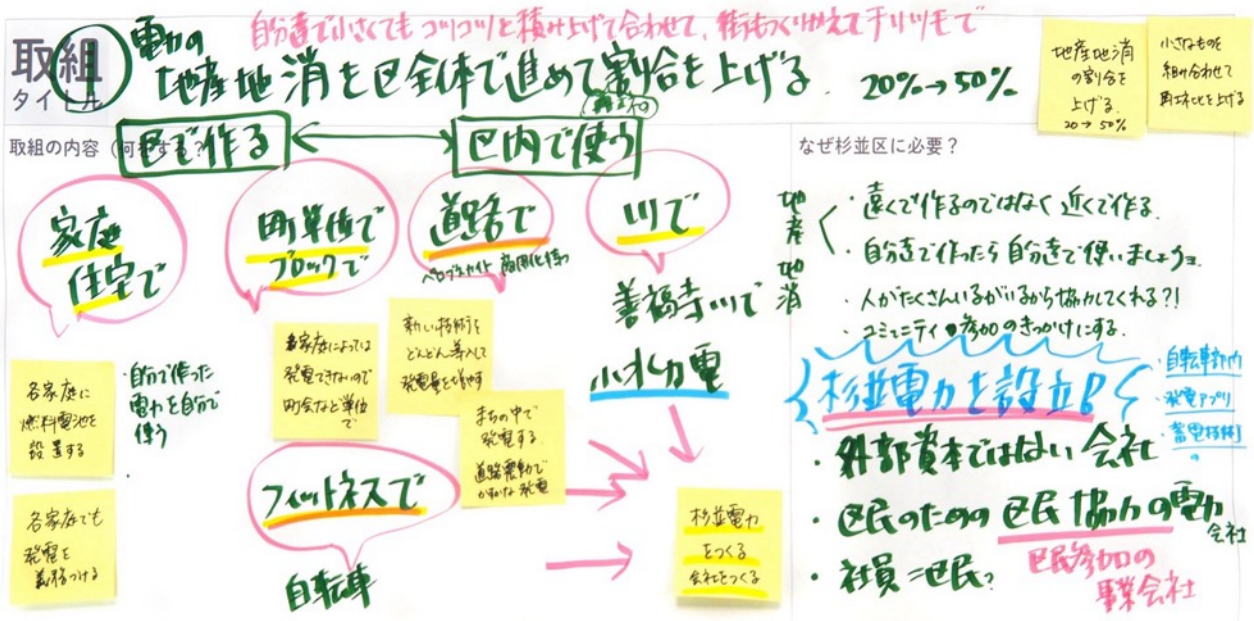 自分達で小さくてもコツコツと積み上げて合わせて、街もつくりかえてチリツモで
取組
タイトル
① 電力の
地産地消を区全体で進めて割合を上げる 20%→50%
(再エネの)
地産地消
の割合を
上げる
20→50%
小さなものを
組み合わせて
再エネ化を上げる
取組の内容(何をする?)
区で作る
区内で使う
家庭
住宅で
町単位で
ブロックで
道路で
ペロブスカイト 商用化待つ
川で
善福寺川で
小水力電
各家庭に
燃料電池を
設置する
・自分で作った
電力を自分で
使う
各家庭でも
発電を
義務づける
各家庭によっては
発電できないので
町会など単位
で
新しい技術を
どんどん導入して
発電量を増やす
まちの中で
発電する
道路震動で
かすかな発電
フィットネスで
自転車
杉並電力
をつくる
会社をつくる
なぜ杉並区に必要?
地産地消
・遠くで作るのではなく近くで作る
・自分達で作ったら自分達で使いましょうョ
・人がたくさんいるがいるから協力してくれる?!
・コミュニティ参加のきっかけにする
杉並電力を設立!!
・自転車
・発電アプリ
・蓄電技術
・外部資本ではない会社
・区民のための区民協力の電力
会社
・社員=区民?
区民参加の
事業会社